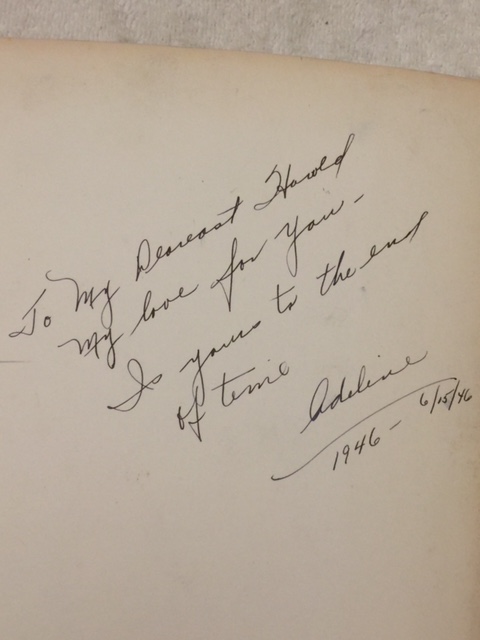 To My Dearest Harold
My love for you -
Is yours to the end
of time
Adeline
1946 - 6/15/46